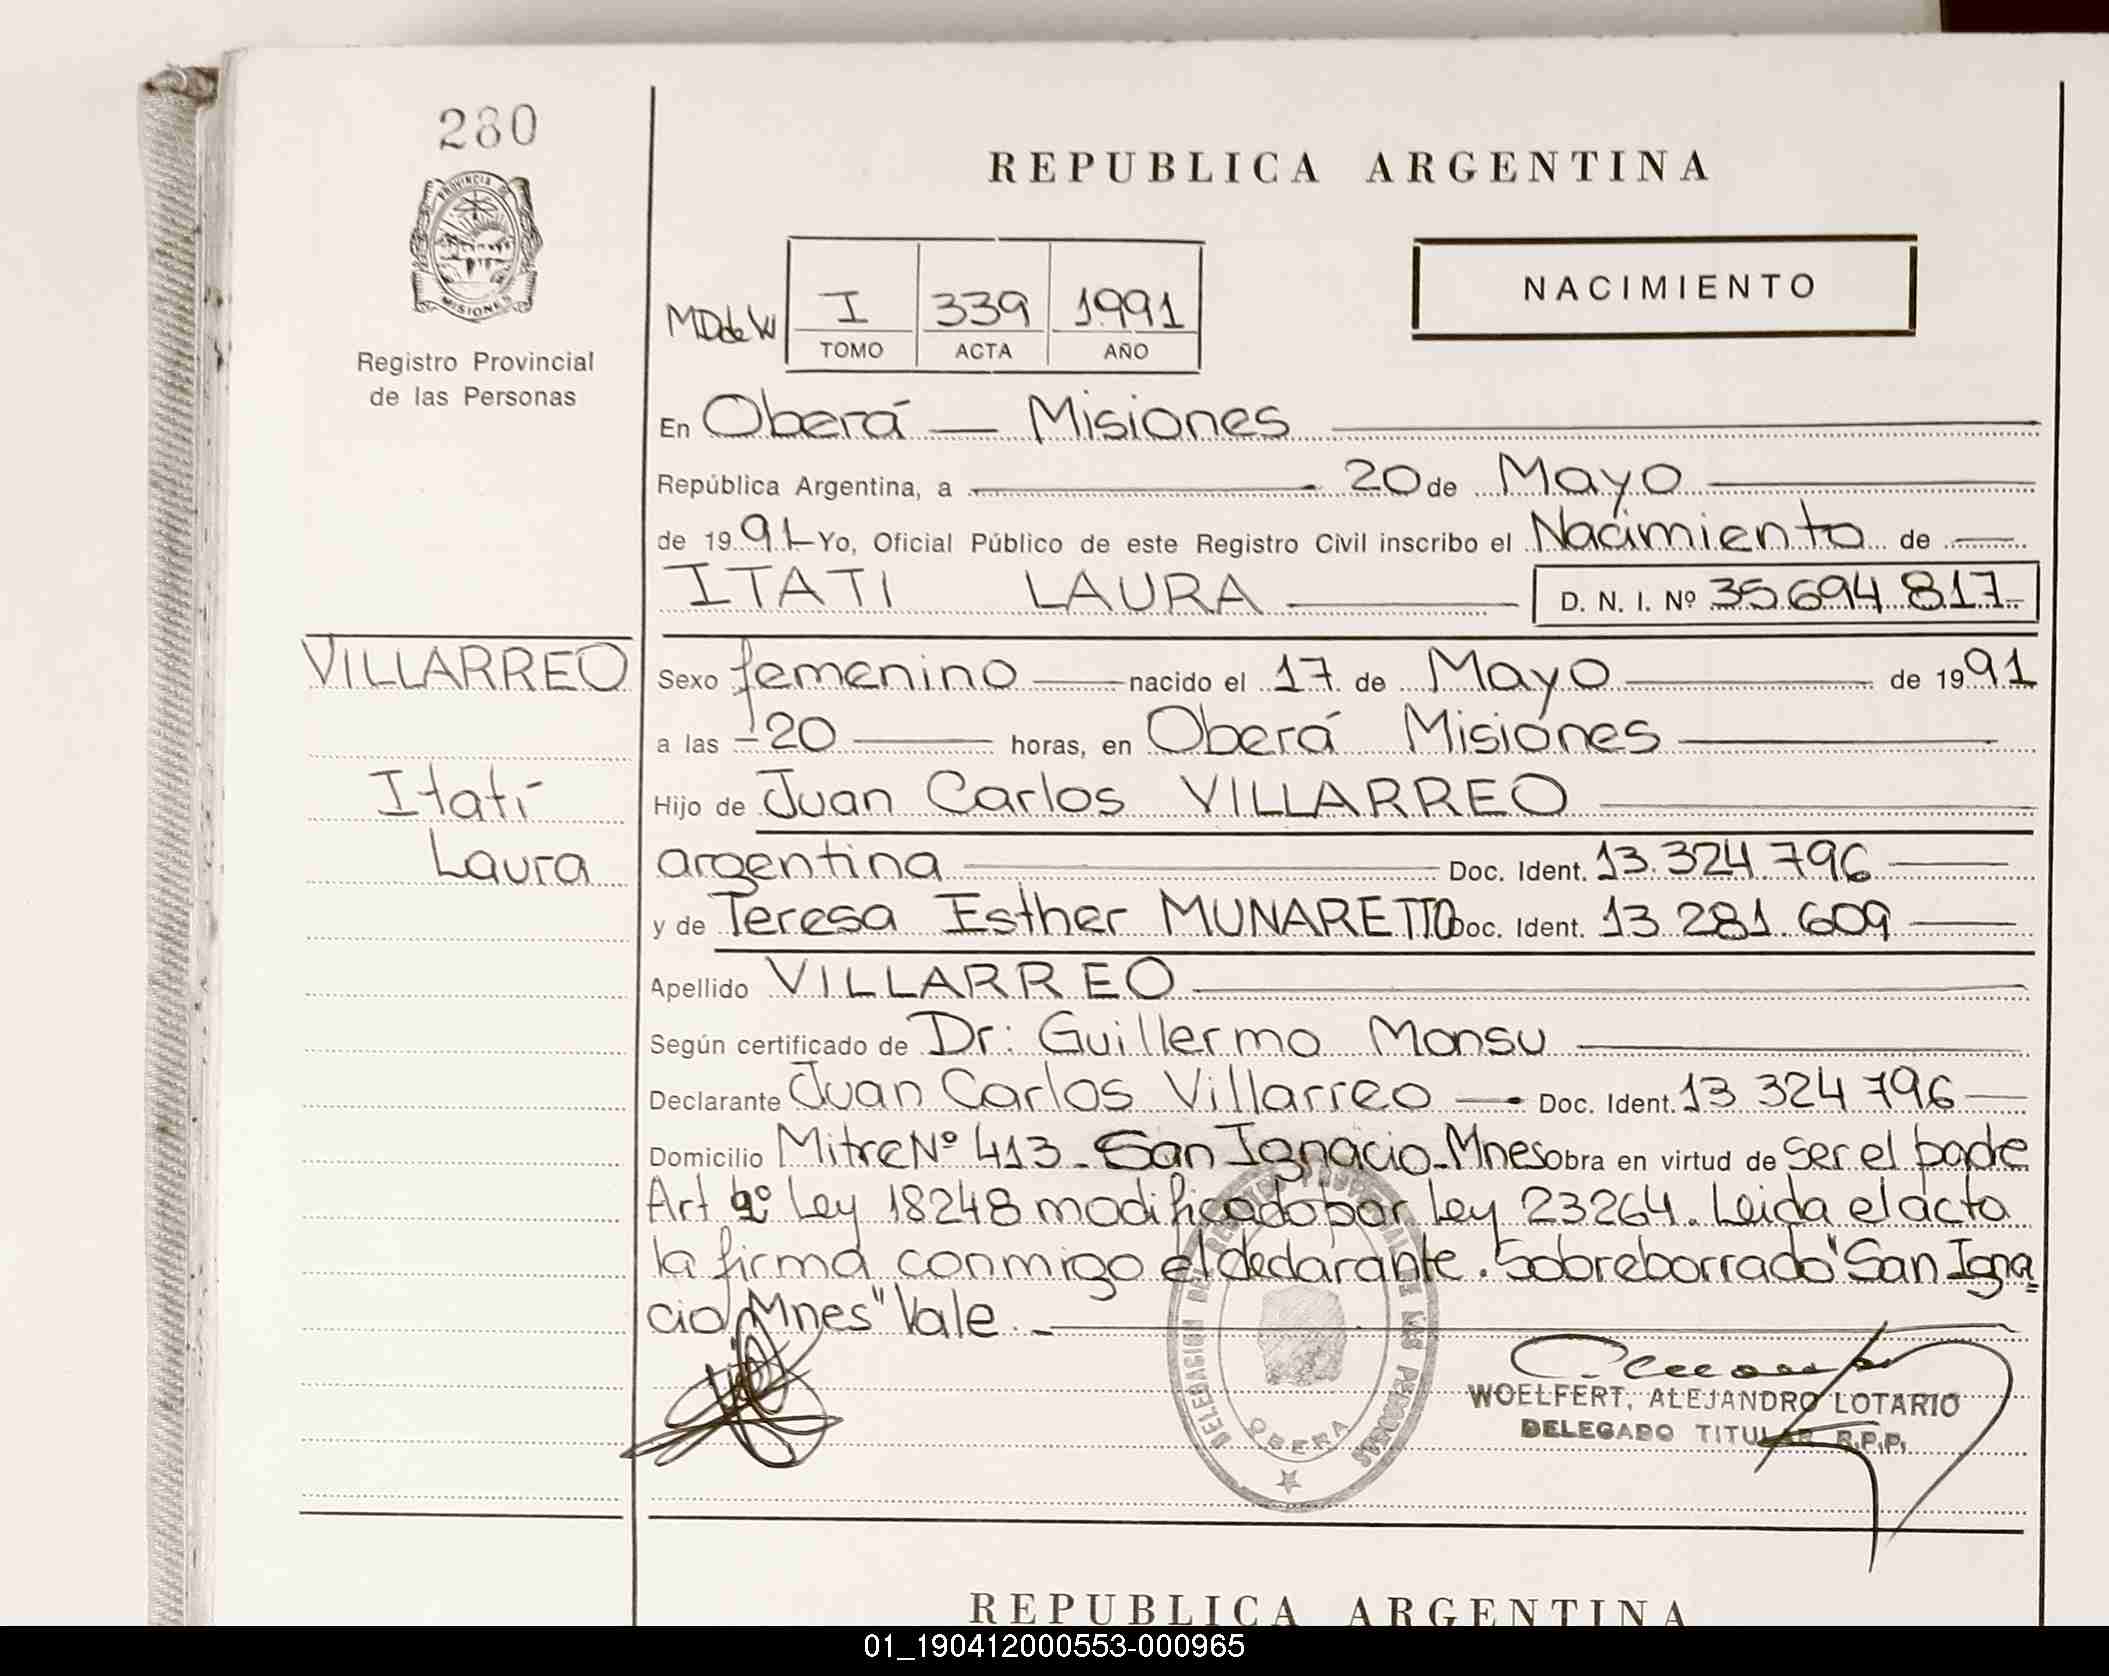 280
PROVINCIA DE
MISIONES
Registro Provincial
de las Personas
REPUBLICA ARGENTINA
NACIMIENTO
MDdeW I 339 1991
TOMO ACTA AÑO
En Oberá — Misiones
República Argentina, a 20 de Mayo
de 1991 Yo, Oficial Público de este Registro Civil inscribo el Nacimiento de
ITATI LAURA D. N. I. Nº 35.694.817
VILLARREO
Itatí
Laura
Sexo femenino nacido el 17 de Mayo de 1991
a las 20 horas, en Oberá Misiones
Hijo de Juan Carlos VILLARREO
argentina Doc. Ident. 13.324.796
y de Teresa Esther MUNARETTO Doc. Ident. 13 281.609
Apellido VILLARREO
Según certificado de Dr: Guillermo Monsu
Declarante Juan Carlos Villarreo Doc. Ident. 13 324 796
Domicilio Mitre Nº 413 - San Ignacio - Mnes Obra en virtud de ser el padre
Art Ley 18248 modificado por Ley 23264. Leida el acta
la firma conmigo el declarante. Sobreborrado "San Igna=
cio Mnes" Vale. -
DELEGACION DEL REGISTRO PROVINCIAL DE LAS PERSONAS
OBERA
WOELFERT, ALEJANDRO LOTARIO
DELEGADO TITULAR R.P.P.
REPUBLICA ARGENTINA
01_190412000553-000965